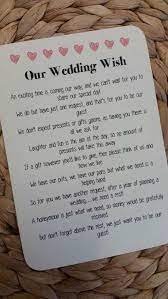 Our Wedding Wish
An exciting time is coming our way, and we can't wait for you to
share our special day!
We do but have just one request, and that's for you to be our
guest
We don't expect presents or gifts galore, as having you there is
all we ask for
Laughter and fun is the aim of the day, so no amount of
presents will take this away
If a gift however you'd like to give, then please think of us and
how we live
We have our pots, we have our pans but what we need is a
helping hand
So for you we have another request, after a year of planning a
wedding....we need a rest!
A honeymoon is just what we need, so money would be gratefully
received
but don't forget above the rest, we just want you to be our
guest